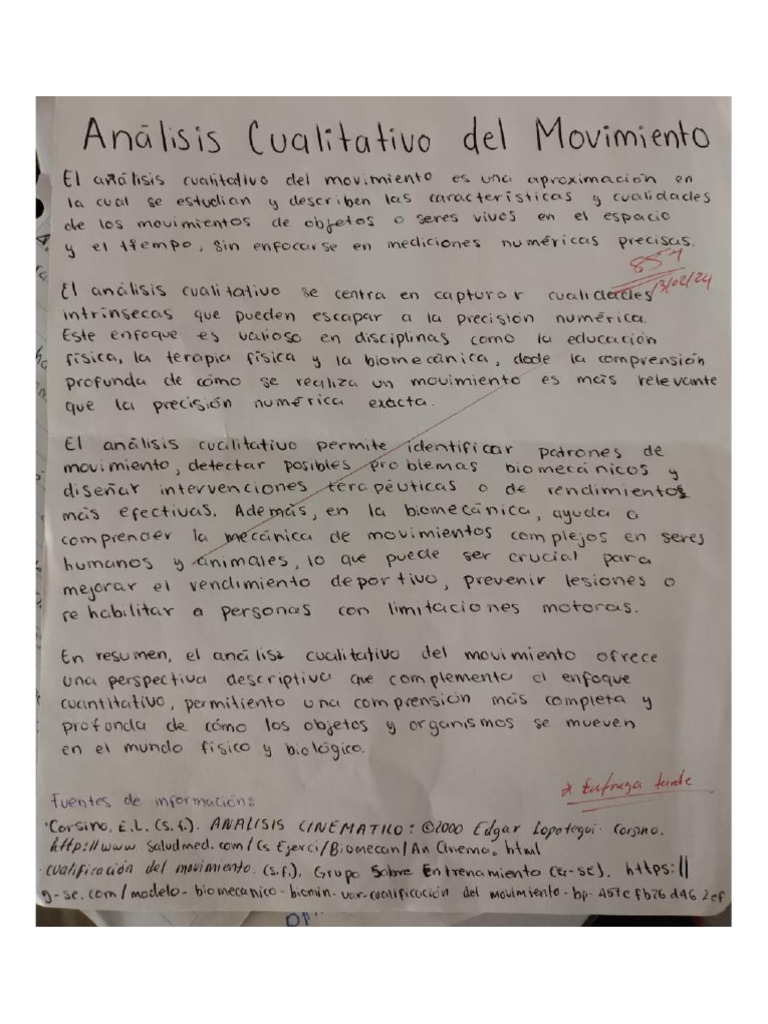 Análisis Cualitativo del Movimiento
El análisis cualitativo del movimiento es una aproximación en
la cual se estudian y describen las características y cualidades
de los movimientos de objetos o seres vivos en el espacio
y el tiempo, sin enfocarse en mediciones numéricas precisas.
13/02/24
El análisis cualitativo se centra en capturar cualidades
intrínsecas que pueden escapar a la precisión numérica.
Este enfoque es valioso en disciplinas como la educación
física, la terapia física y la biomecánica, dode la comprensión
profunda de cómo se realiza un movimiento es más relevante
que la precisión numérica exacta.
El análisis cualitativo permite identificar patrones de
movimiento, detectar posibles problemas biomecánicos y
diseñar intervenciones terapéuticas o de rendimientos
más efectivas. Además, en la biomecánica, ayuda a
comprender la mecánica de movimientos complejos en seres
humanos y animales, lo que puede ser crucial para
mejorar el vendimiento deportivo, prevenir lesiones o
rehabilitar a personas con limitaciones motoras.
En resumen, el cualitativo del movimiento ofrece
una perspectiva descriptiva que complementa el enfoque
cuantitativo, permitiento una comprensión más completa y
profunda de cómo los objetos y organismos se mueven
en el mundo físico y biológico.
* Entrega tarde
Fuentes de información:
·Corsino, E.L. (s.f.). ANALISIS CINEMATICO: ©2000 Edgar Lopategui Corsino.
http://www saludmed.com/Cs Ejerci/Biomecan/An Cinema.html
·cualificación del movimiento. (s.f.). Grupo Sobre Entrenamiento (G-SE). https://
g-se.com/modelo-biomecanico-biomin-var-cualificacion del movimiento-bp-